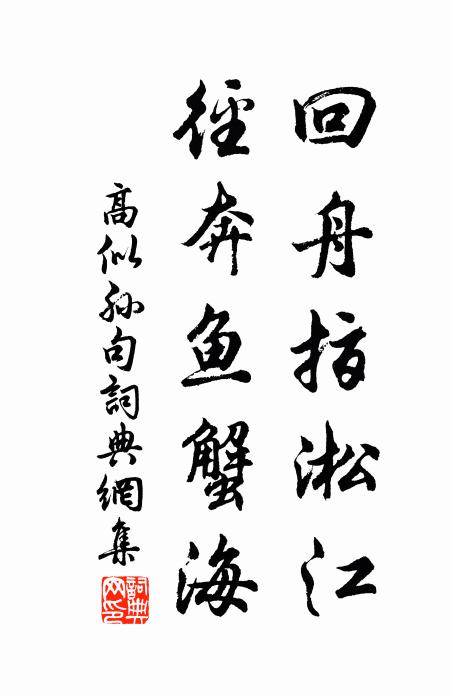 回舟指淞江
径奔鱼蟹海
高似孙句詞典網集
詞典网印